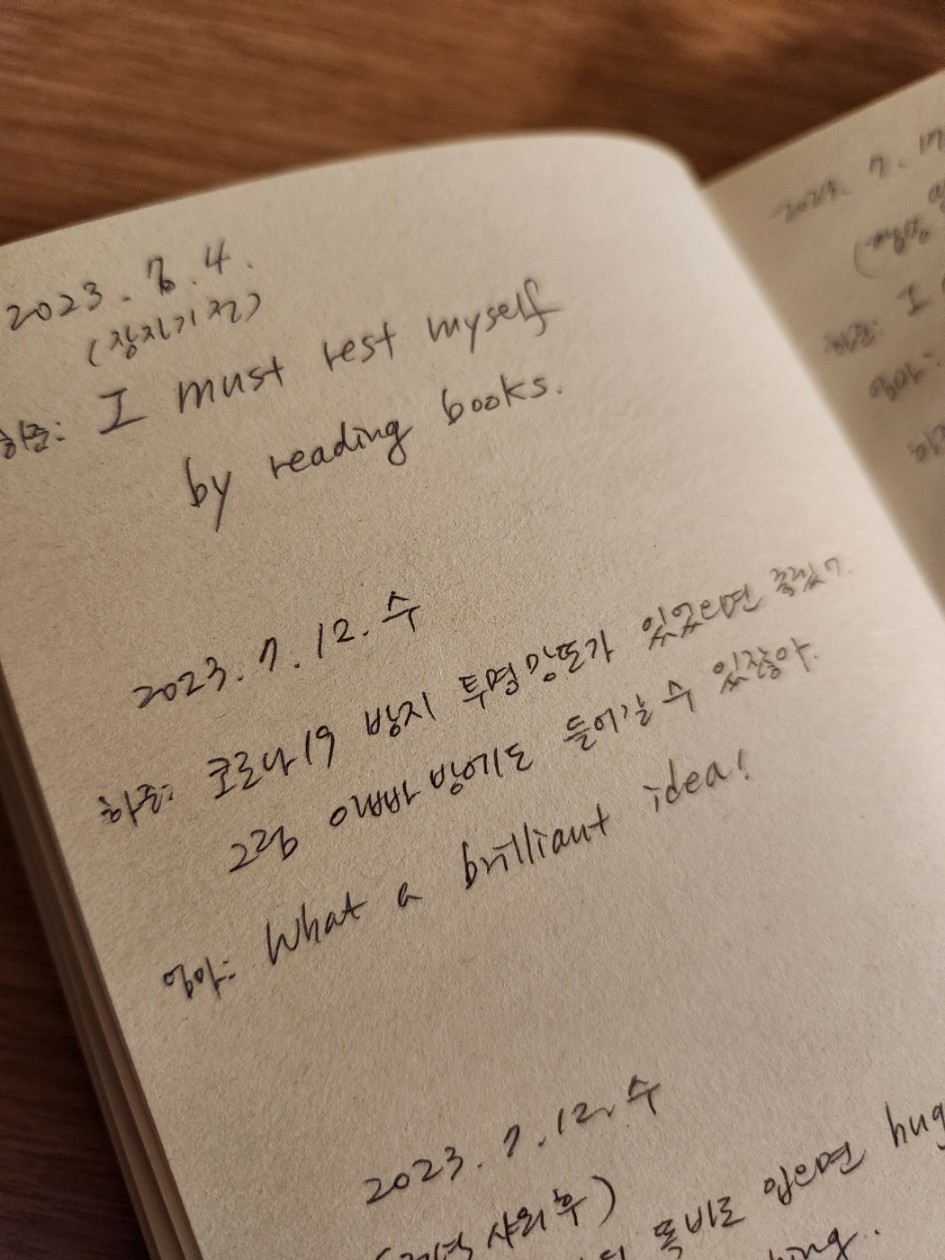 2023. 7. 4.
(잠자기 전)
하준: I must rest myself
by reading books.
2023. 7. 12. 수
하준: 코로나19 방지 투명망또가 있었으면 좋겠가.
그럼 아빠방에도 들어갈 수 있잖아.
엄마: What a brilliant idea!
2023. 7. 12. 수
(저녁 샤워 후)
똑바로 입으면 hug
2023. 7. 17
하준: I
엄마: